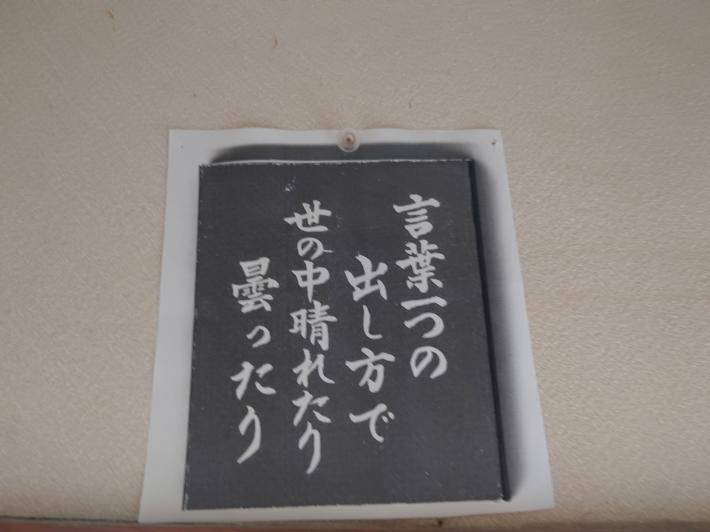 言葉一つの
出し方で
世の中晴れたり
曇ったり